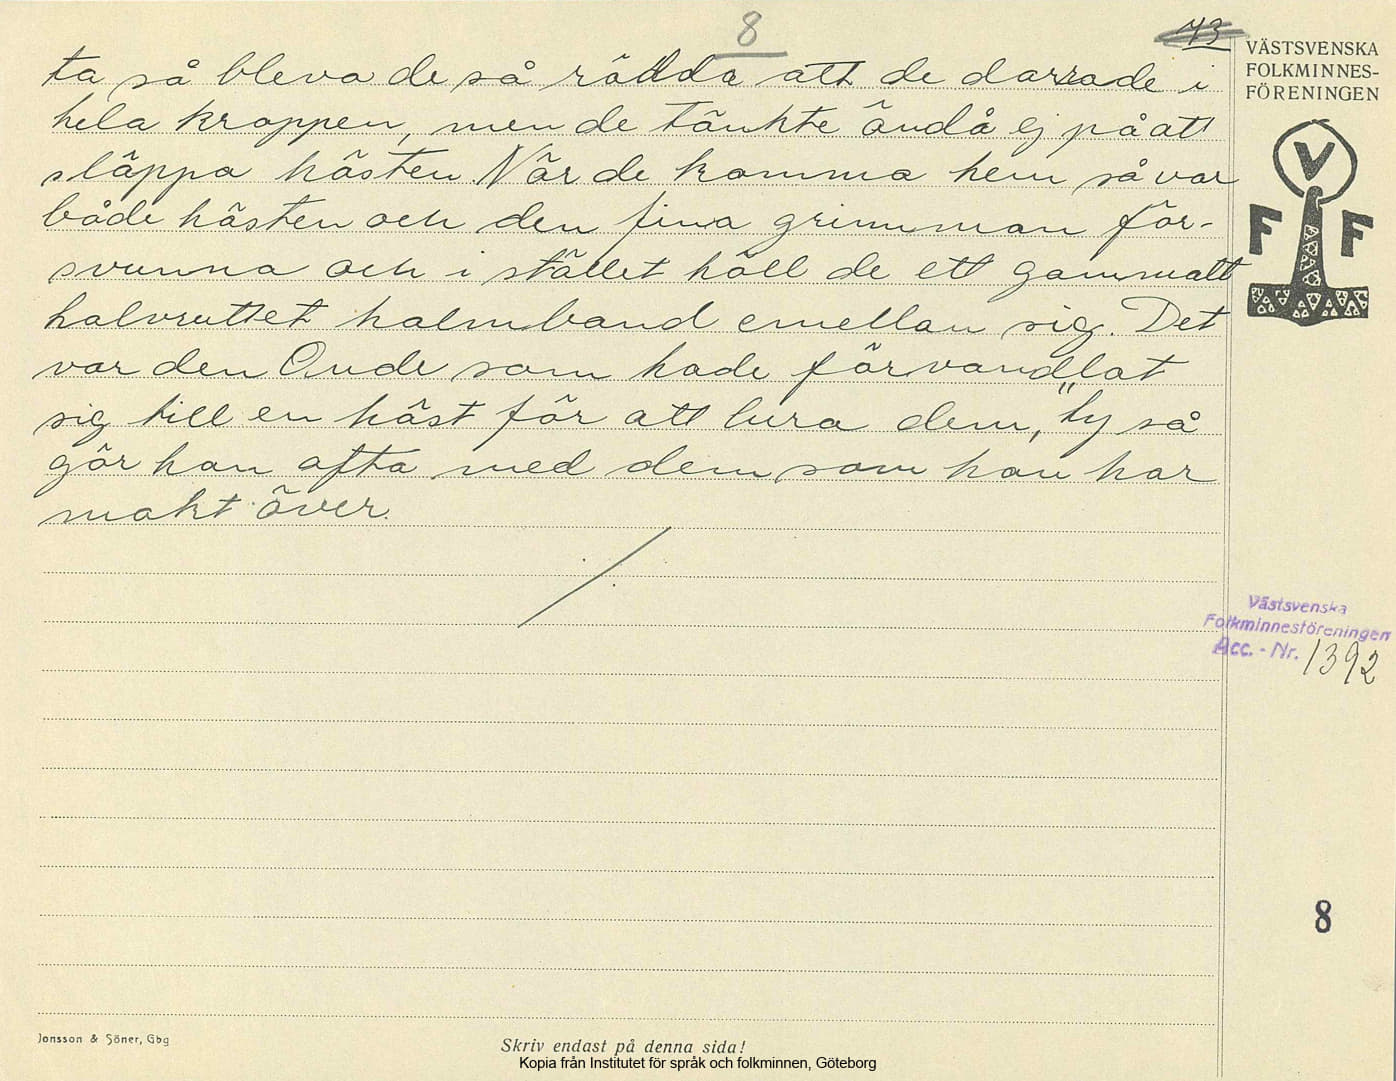 8
73
VÄSTSVENSKA
FOLKMINNES-
FÖRENINGEN
ta så bleva de så rädda att de darrade i
hela kroppen, men de tänkte ändå ej på att
släppa hästen. När de komma hem så var
både hästen och den fina grimman för-
svunna och i stället höll de ett gammalt
halvruttet halmband emellan sig. Det
var den Onde som hade förvandlat
sig till en häst för att lura dem, "ty så
gör han ofta med dem som han har
makt över.
V
F F
Västsvenska
Folkminnesföreningen
Acc. - Nr. 1392
8
Jonsson & Söner, Gbg
Skriv endast på denna sida!
Kopia från Institutet för språk och folkminnen, Göteborg